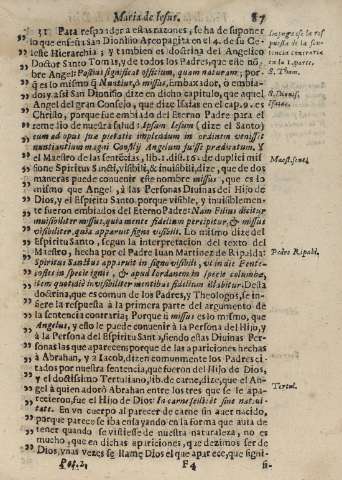 Maria de Iesus. 87
31 Para responder a estas razones, se ha de suponer
lo que enseña san Dionisio Areopagita en el 4. de su Ce-
leste Hierarchia; y tambien es doctrina del Angelico
Doctor Santo Tomas, y de todos los Padres, que este nō-
bre Angel: Potius significat officium, quam naturam; por-
q̄ es lo mismo q̄ Nuntius, ò missus, Embaxador, ò embia-
do; y assi san Dionisio dize en dicho capitulo, que aquel
Angel del gran Consejo, que dize Isaias en el cap. 9. es
Christo, porque fue embiado del Eterno Padre para el
remedio de nuestra salud: Ipsum Iesum (dize el Santo)
eum ad opus suæ pietatis implendum in ordinem venisse
nuntiantium magni Consilij Angelum fuisse prædicatum. Y
el Maestro de las sentēcias, lib. 1. dist. 16. de duplici mis
sione Spiritus Sancti, visibili, & inuisibili, dize, que de dos
maneras puede conuenir este nombre missus, que es lo
mismo que Angel, à las Personas Diuinas del Hijo de
Dios, y el Espiritu Santo, porque visible, y inuisiblemen-
te fueron embiados del Eterno Padre: Nam Filius dicitur
inuisibiliter missus, quia mente fidelium percipitur, & missus
visibiliter, quia apparuit signo visibili. Lo mismo dize del
Espiritu Santo, segun la interpretacion del texto del
Maestro, hecha por el Padre Iuan Martinez de Ripalda:
Spiritus Sanctus apparuit in signo visibili, vt in die Pente-
costes in specie ignis, & apud Iordanem in specie columbæ,
item quotidiè inuisibiliter mentibus fidelium illabitur. Desta
doctrina, que es comun de los Padres, y Theologos, se in-
fiere la respuesta à la primera parte del argumento de
la sentencia contraria; Porque si missus es lo mismo, que
Angelus, y esto le puede conuenir à la Persona del Hijo, y
à la Persona del Espiritu Santo, siendo estas Diuinas Per-
sonas las que aparecen porque de las apariciones hechas
à Abrahan, y à Iacob, dizen comunmente los Padres ci-
tados por nuestra sentencia, que fueron del Hijo de Dios,
y el doctissimo Tertuliano, lib. de carne, dize, que el An-
gel à quien adorò Abrahan entre los tres que se le apa-
recieron, fue el Hijo de Dios: In carne sed sit sine natiui-
tate. En vn cuerpo al parecer de carne sin auer nacido,
porque parece se iba ensayando en la forma que auia de
tener quando se vistiesse de nuestra naturaleza, no es
mucho, que en dichas apariciones, que dezimos ser de
Dios, vnas vezes se llame Dios el que aparece, que signi-
F4
S. Thom.
S. Dionis.
Isaiae.
Maest. sent.
Padre Ripald.
Tertul.